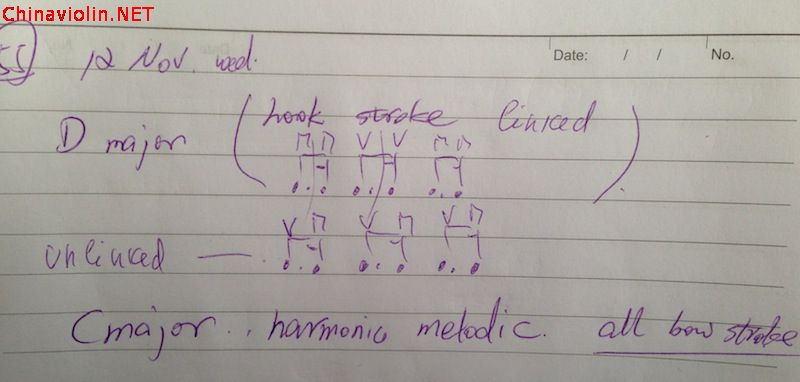 Chinaviolin.NET
Date: / / No.
55 12 Nov. wed.
(hook stroke linked)
D major
V V
V V V
unlinked —
C major.. harmonic melodic. all bow stroke